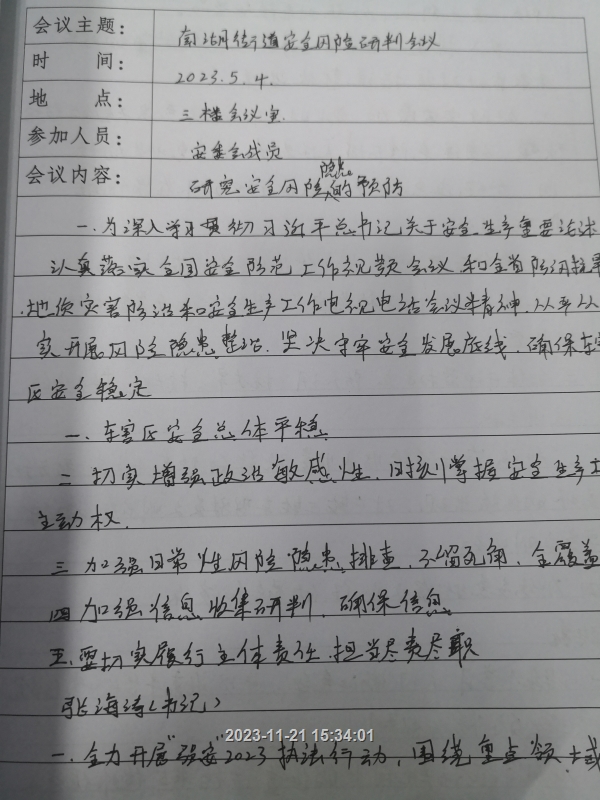 会议主题： 南湖街道安全风险研判会议
时 间： 2023.5.4.
地 点： 三楼会议室
参加人员： 安委会成员
会议内容： 研究安全风险隐患的预防
一.为深入学习贯彻习近平总书记关于安全生产重要论述
认真落实全国安全防范工作视频会议和全省防汛抗旱
地质灾害防治和安全生产工作电视电话会议精神,从严从
实开展风险隐患整治.坚决守牢安全发展底线.确保
区安全稳定
一、区安全总体平稳
二 切实增强政治敏感性,时刻掌握安全生产
主动权.
三 加强日常性风险隐患排查,不留死角,全覆盖
四 加强信息收集研判,确保信息
五.要切实履行主体责任.担当尽责尽职
张海涛(书记)
2023-11-21 15:34:01
一.全力开展"强安"2023执法行动,围绕重点领土或